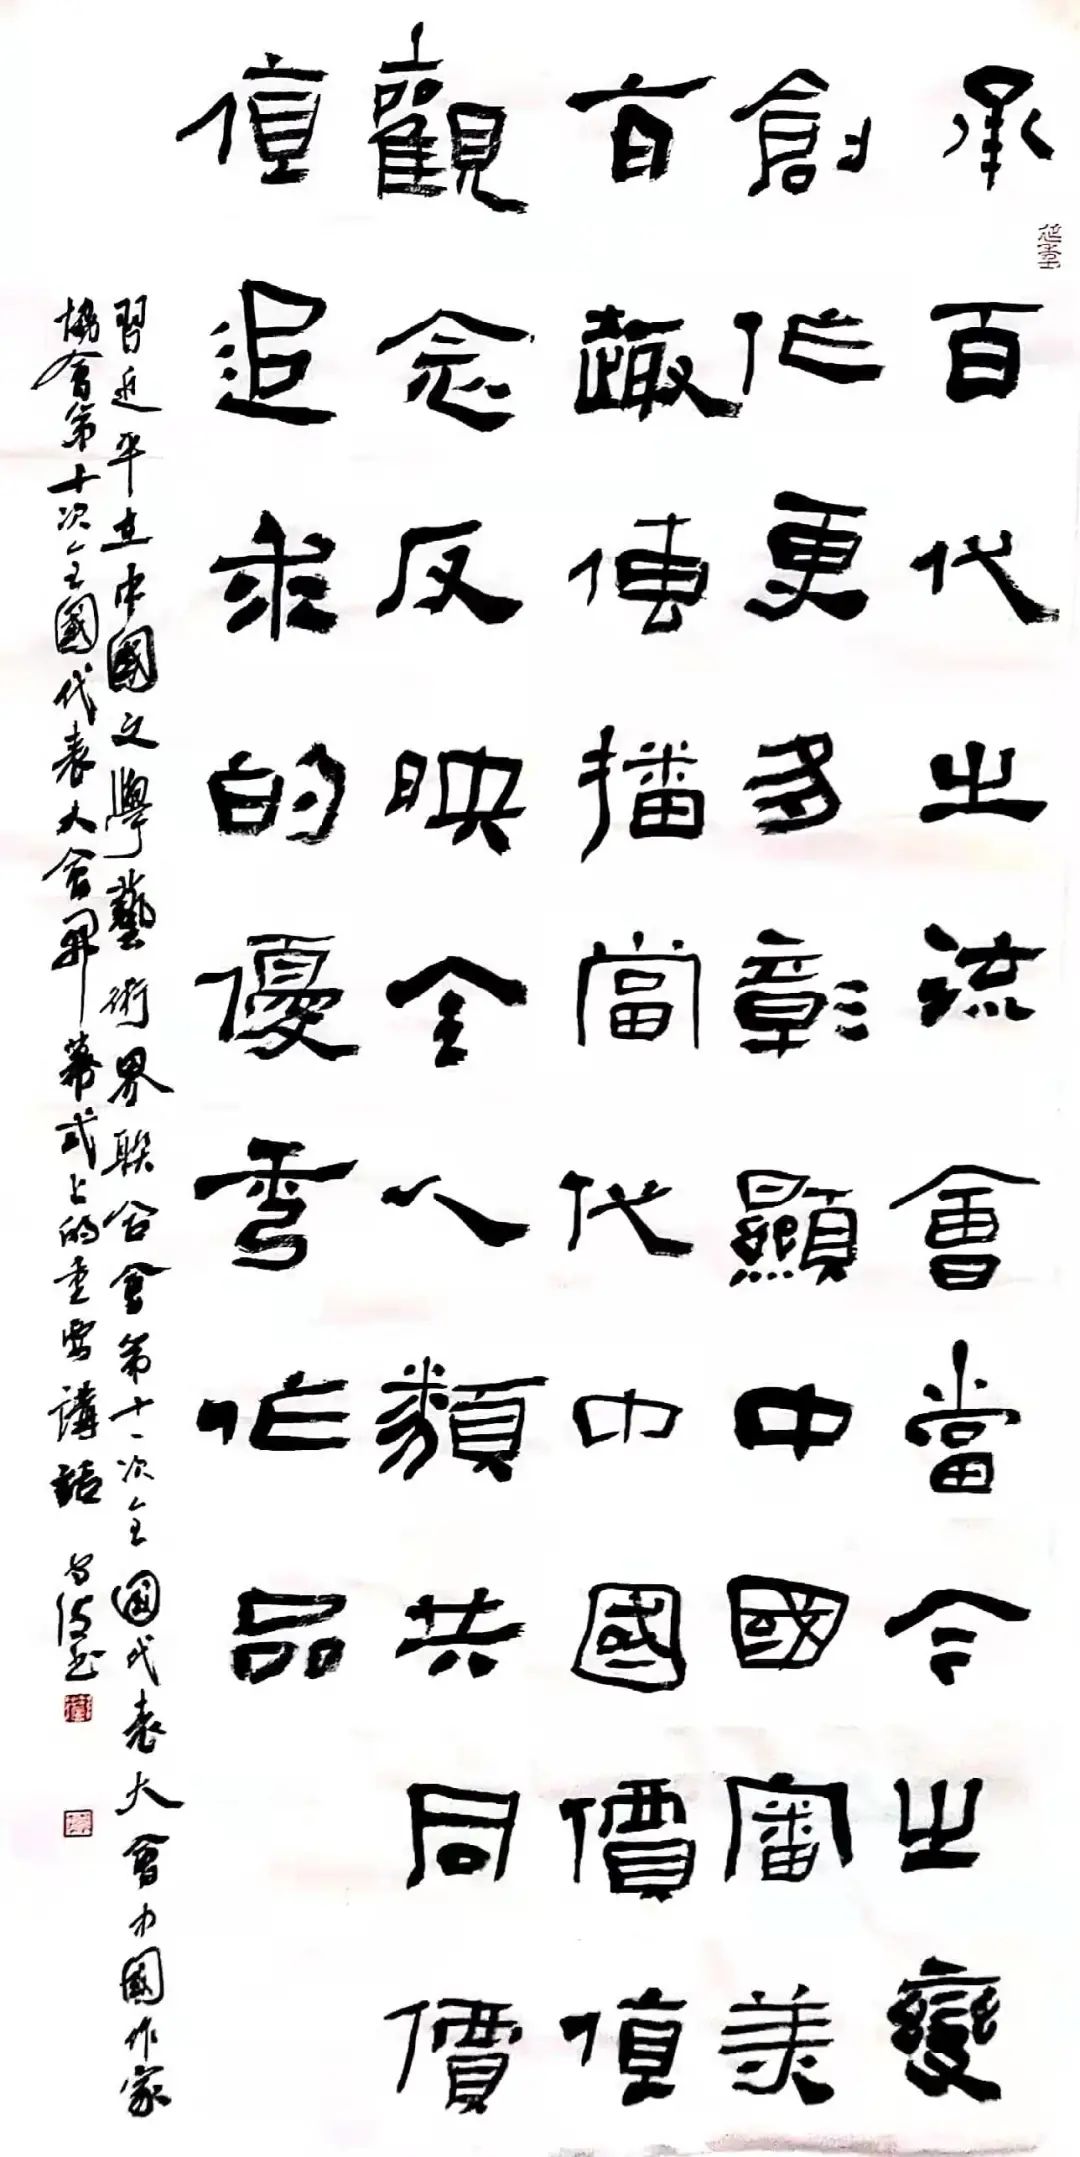 承百代之流會當今之變
創作更多彰顯中國審美
旨趣傳播當代中國價值
觀念反映全人類共同價
值追求的優秀作品
習近平在中國文學藝術界聯合會第十一次全國代表大會中國作家
協會第十次全國代表大會開幕式上的重要講話